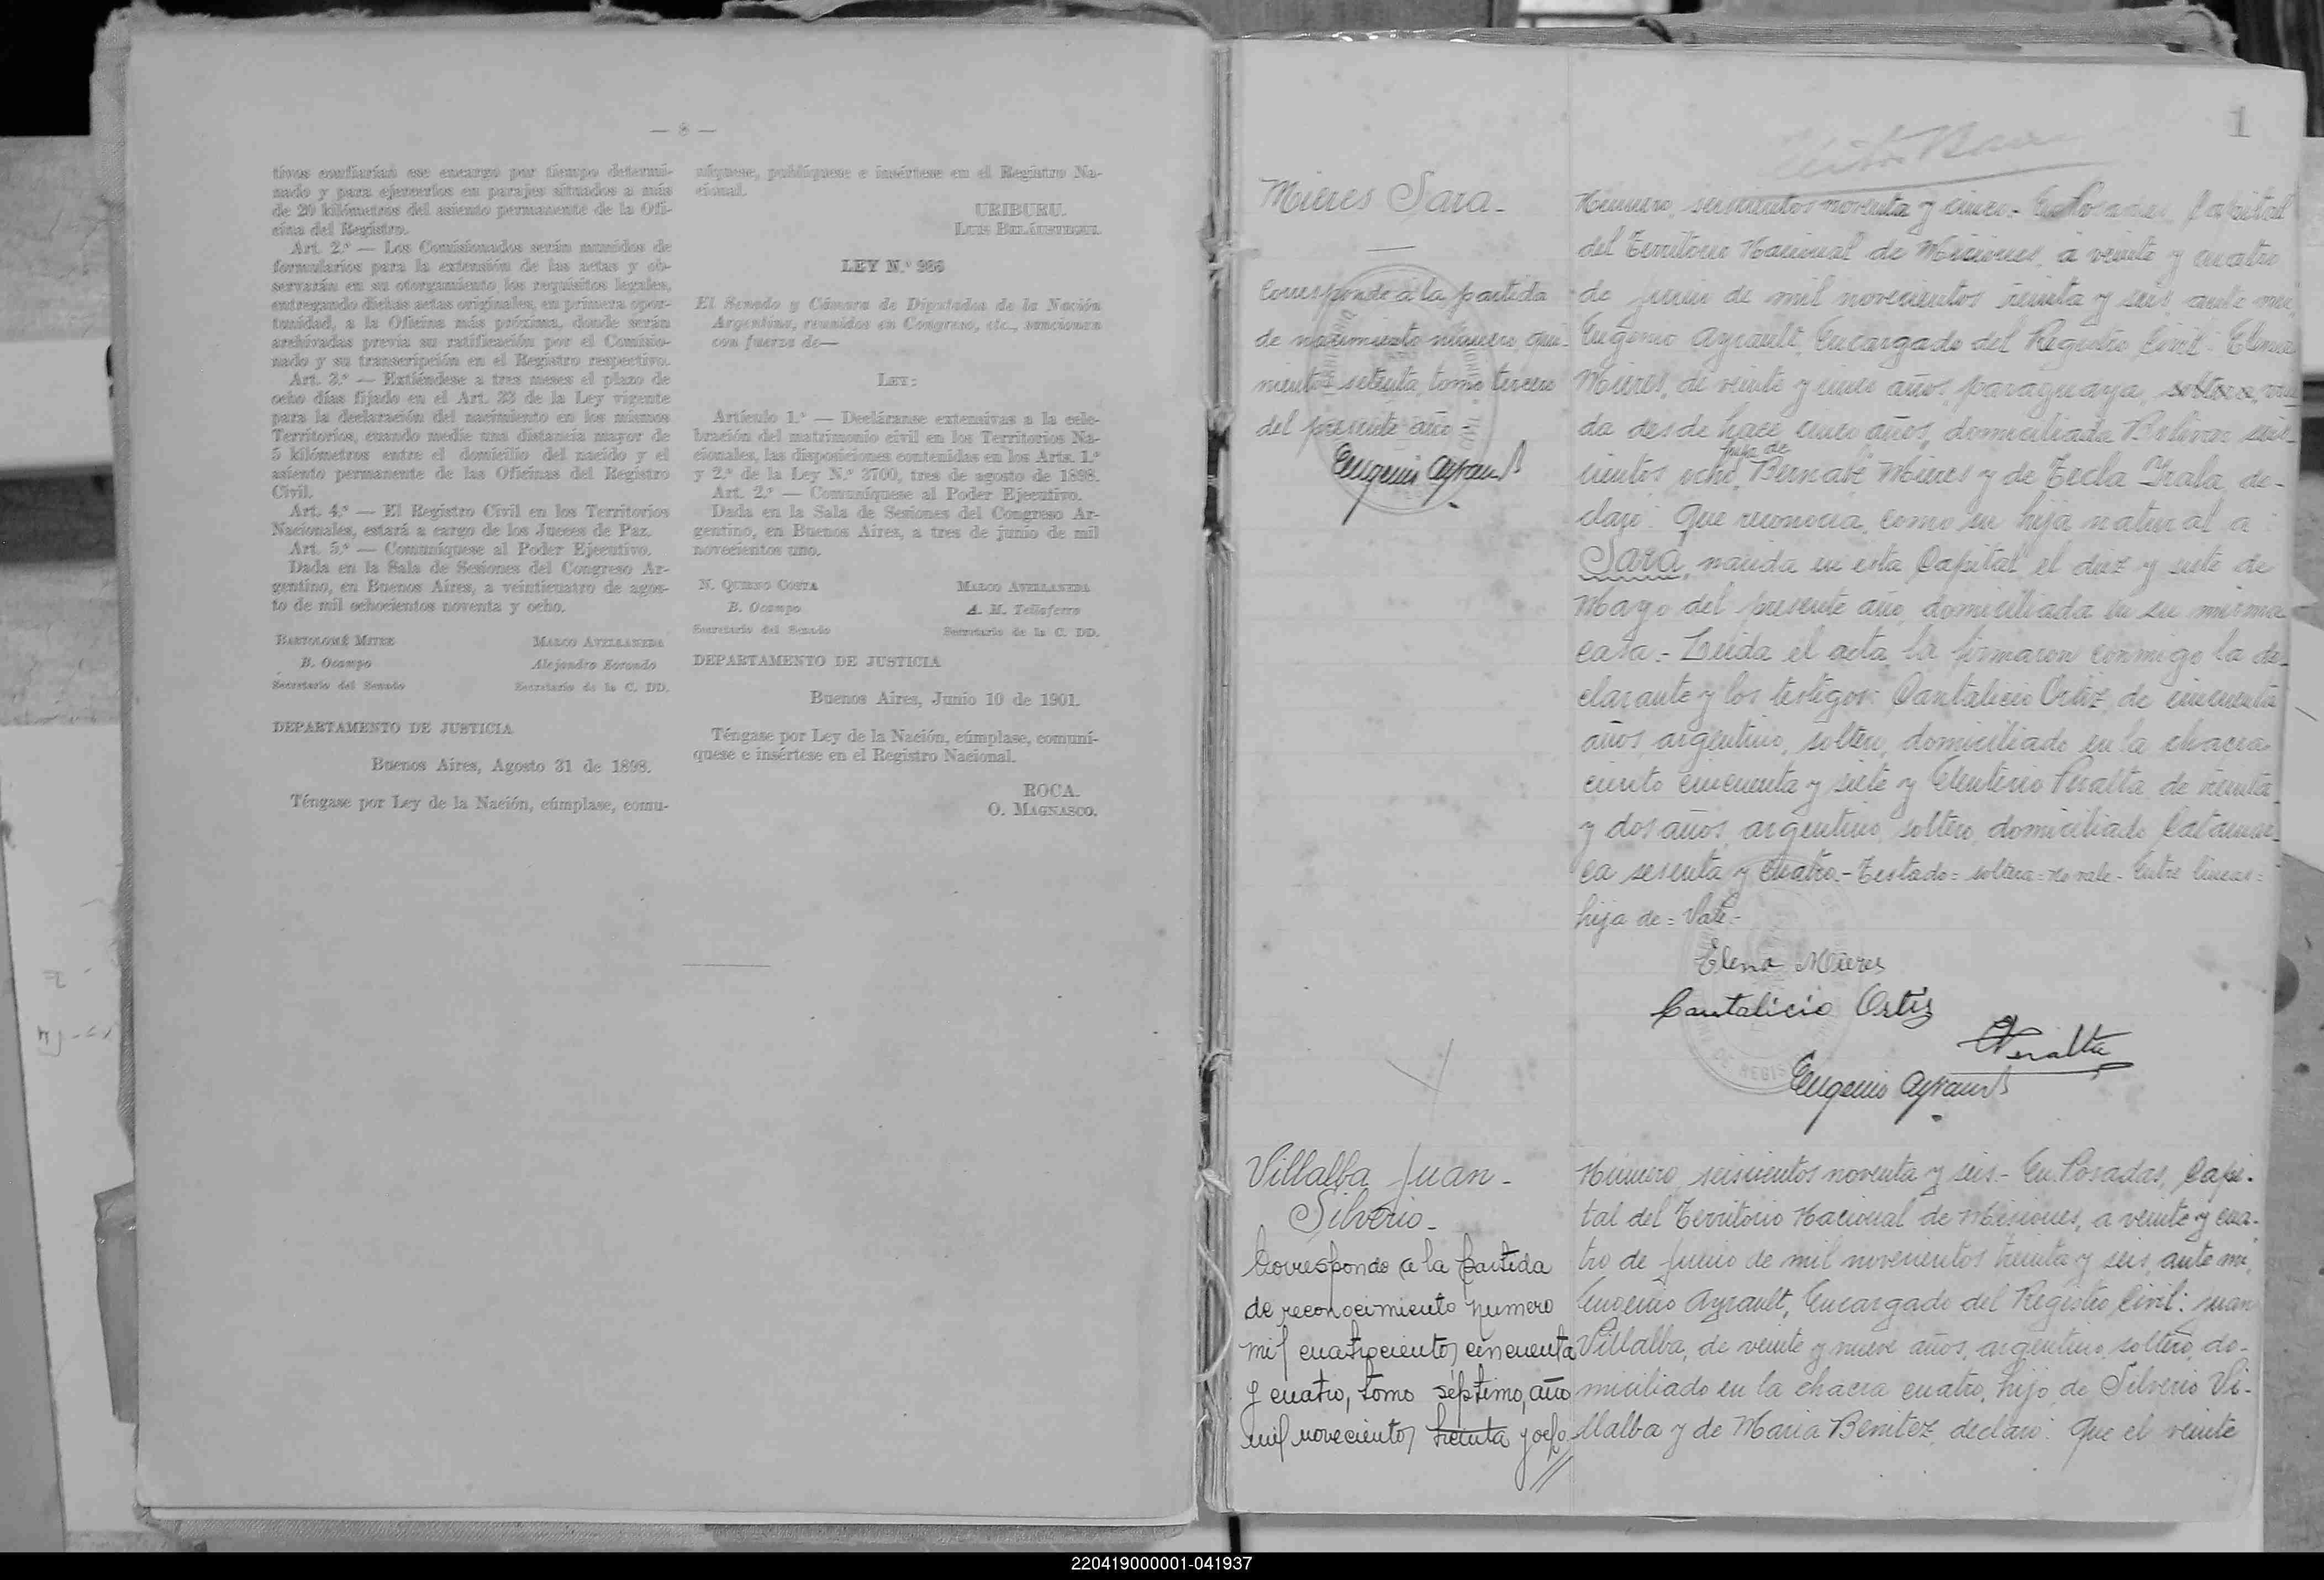 — 8 —
tivos confiarían ese encargo por tiempo determi-
nado y para ejercerlos en parajes situados a más
de 20 kilómetros del asiento permanente de la Ofi-
cina del Registro.
Art. 2.° — Los Comisionados serán munidos de
formularios para la extensión de las actas y ob-
servarán en su otorgamiento los requisitos legales,
entregando dichas actas originales, en primera opor-
tunidad, a la Oficina más próxima, donde serán
archivadas previa su ratificación por el Comisio-
nado y su transcripción en el Registro respectivo.
Art. 3.° — Extiéndese a tres meses el plazo de
ocho días fijado en el Art. 33 de la Ley vigente
para la declaración del nacimiento en los mismos
Territorios, cuando medie una distancia mayor de
5 kilómetros entre el domicilio del nacido y el
asiento permanente de las Oficinas del Registro
Civil.
Art. 4.° — El Registro Civil en los Territorios
Nacionales, estará a cargo de los Jueces de Paz.
Art. 5.° — Comuníquese al Poder Ejecutivo.
Dada en la Sala de Sesiones del Congreso Ar-
gentino, en Buenos Aires, a veinticuatro de agos-
to de mil ochocientos noventa y ocho.
BARTOLOMÉ MITRE MARCO AVELLANEDA
B. Ocampo Alejandro Sorondo
Secretario del Senado Secretario de la C. DD.
DEPARTAMENTO DE JUSTICIA
Buenos Aires, Agosto 31 de 1898.
Téngase por Ley de la Nación, cúmplase, comu-
níquese, publíquese e insértese en el Registro Na-
cional.
URIBURU.
LUIS BELÁUSTEGUI.
LEY N.°
El Senado y Cámara de Diputados de la Nación
Argentina, reunidos en Congreso, etc., sancionan
con fuerza de—
LEY:
Artículo 1.° — Decláranse extensivas a la cele-
bración del matrimonio civil en los Territorios Na-
cionales, las disposiciones contenidas en los Arts. 1.°
y 2.° de la Ley N.° 3700, tres de agosto de 1898.
Art. 2.° — Comuníquese al Poder Ejecutivo.
Dada en la Sala de Sesiones del Congreso Ar-
gentino, en Buenos Aires, a tres de junio de mil
novecientos uno.
N. QUIRNO COSTA MARCO AVELLANEDA
B. Ocampo A. M. Tallaferro
Secretario del Senado Secretario de la C. DD.
DEPARTAMENTO DE JUSTICIA
Buenos Aires, Junio 10 de 1901.
Téngase por Ley de la Nación, cúmplase, comuní-
quese e insértese en el Registro Nacional.
ROCA.
O. MAGNASCO.
1
Mieres Sara -
Corresponde a la partida
de nacimiento número qui-
nientos setenta, tomo tercero
del presente año -
Eugenio Ayrault
Número, seiscientos noventa y cinco - En Posadas, Capital
del Territorio Nacional de Misiones, a veinte y cuatro
de junio de mil novecientos treinta y seis, ante mi,
Eugenio Ayrault, Encargado del Registro Civil: Elena
Mieres, de veinte y cinco años, paraguaya, soltera, viu-
da desde hace cinco años, domiciliada Bolivar seis-
cientos ocho, hija de Bernabé Mieres y de Tecla Irala, de-
claró: Que reconocia como su hija natural a
Sara, nacida en esta Capital, el diez y siete de
Mayo del presente año, domiciliada en su misma
casa.- Leida el acta, la firmaron conmigo la de-
clarante y los testigos: Cantalicio Ortiz, de cincuenta
años, argentino, soltero, domiciliado en la chacra
ciento cincuenta y siete y Eleuterio Peralta, de treinta
y dos años, argentino, soltero, domiciliado Catamar-
ca sesenta y cuatro.- Testado = soltera = no vale - Entre lineas =
hija de = Vale -
Elena Mieres
Cantalicio Ortiz
EPeralta
Eugenio Ayrault
Villalba Juan -
Silverio -
Corresponde a la partida
de reconocimiento numero
mil cuatrocientos cincuenta
y cuatro, tomo séptimo, año
mil novecientos treinta y ocho
Número, seiscientos noventa y seis.- En Posadas, Capi-
tal del Territorio Nacional de Misiones, a veinte y cua-
tro de junio de mil novecientos treinta y seis, ante mi,
Eugenio Ayrault, Encargado del Registro Civil: Juan
Villalba, de veinte y nueve años, argentino, soltero, do-
miciliado en la chacra cuatro, hijo de Silverio Vi-
llalba y de Maria Benitez, declaró: Que el veinte
220419000001-041937